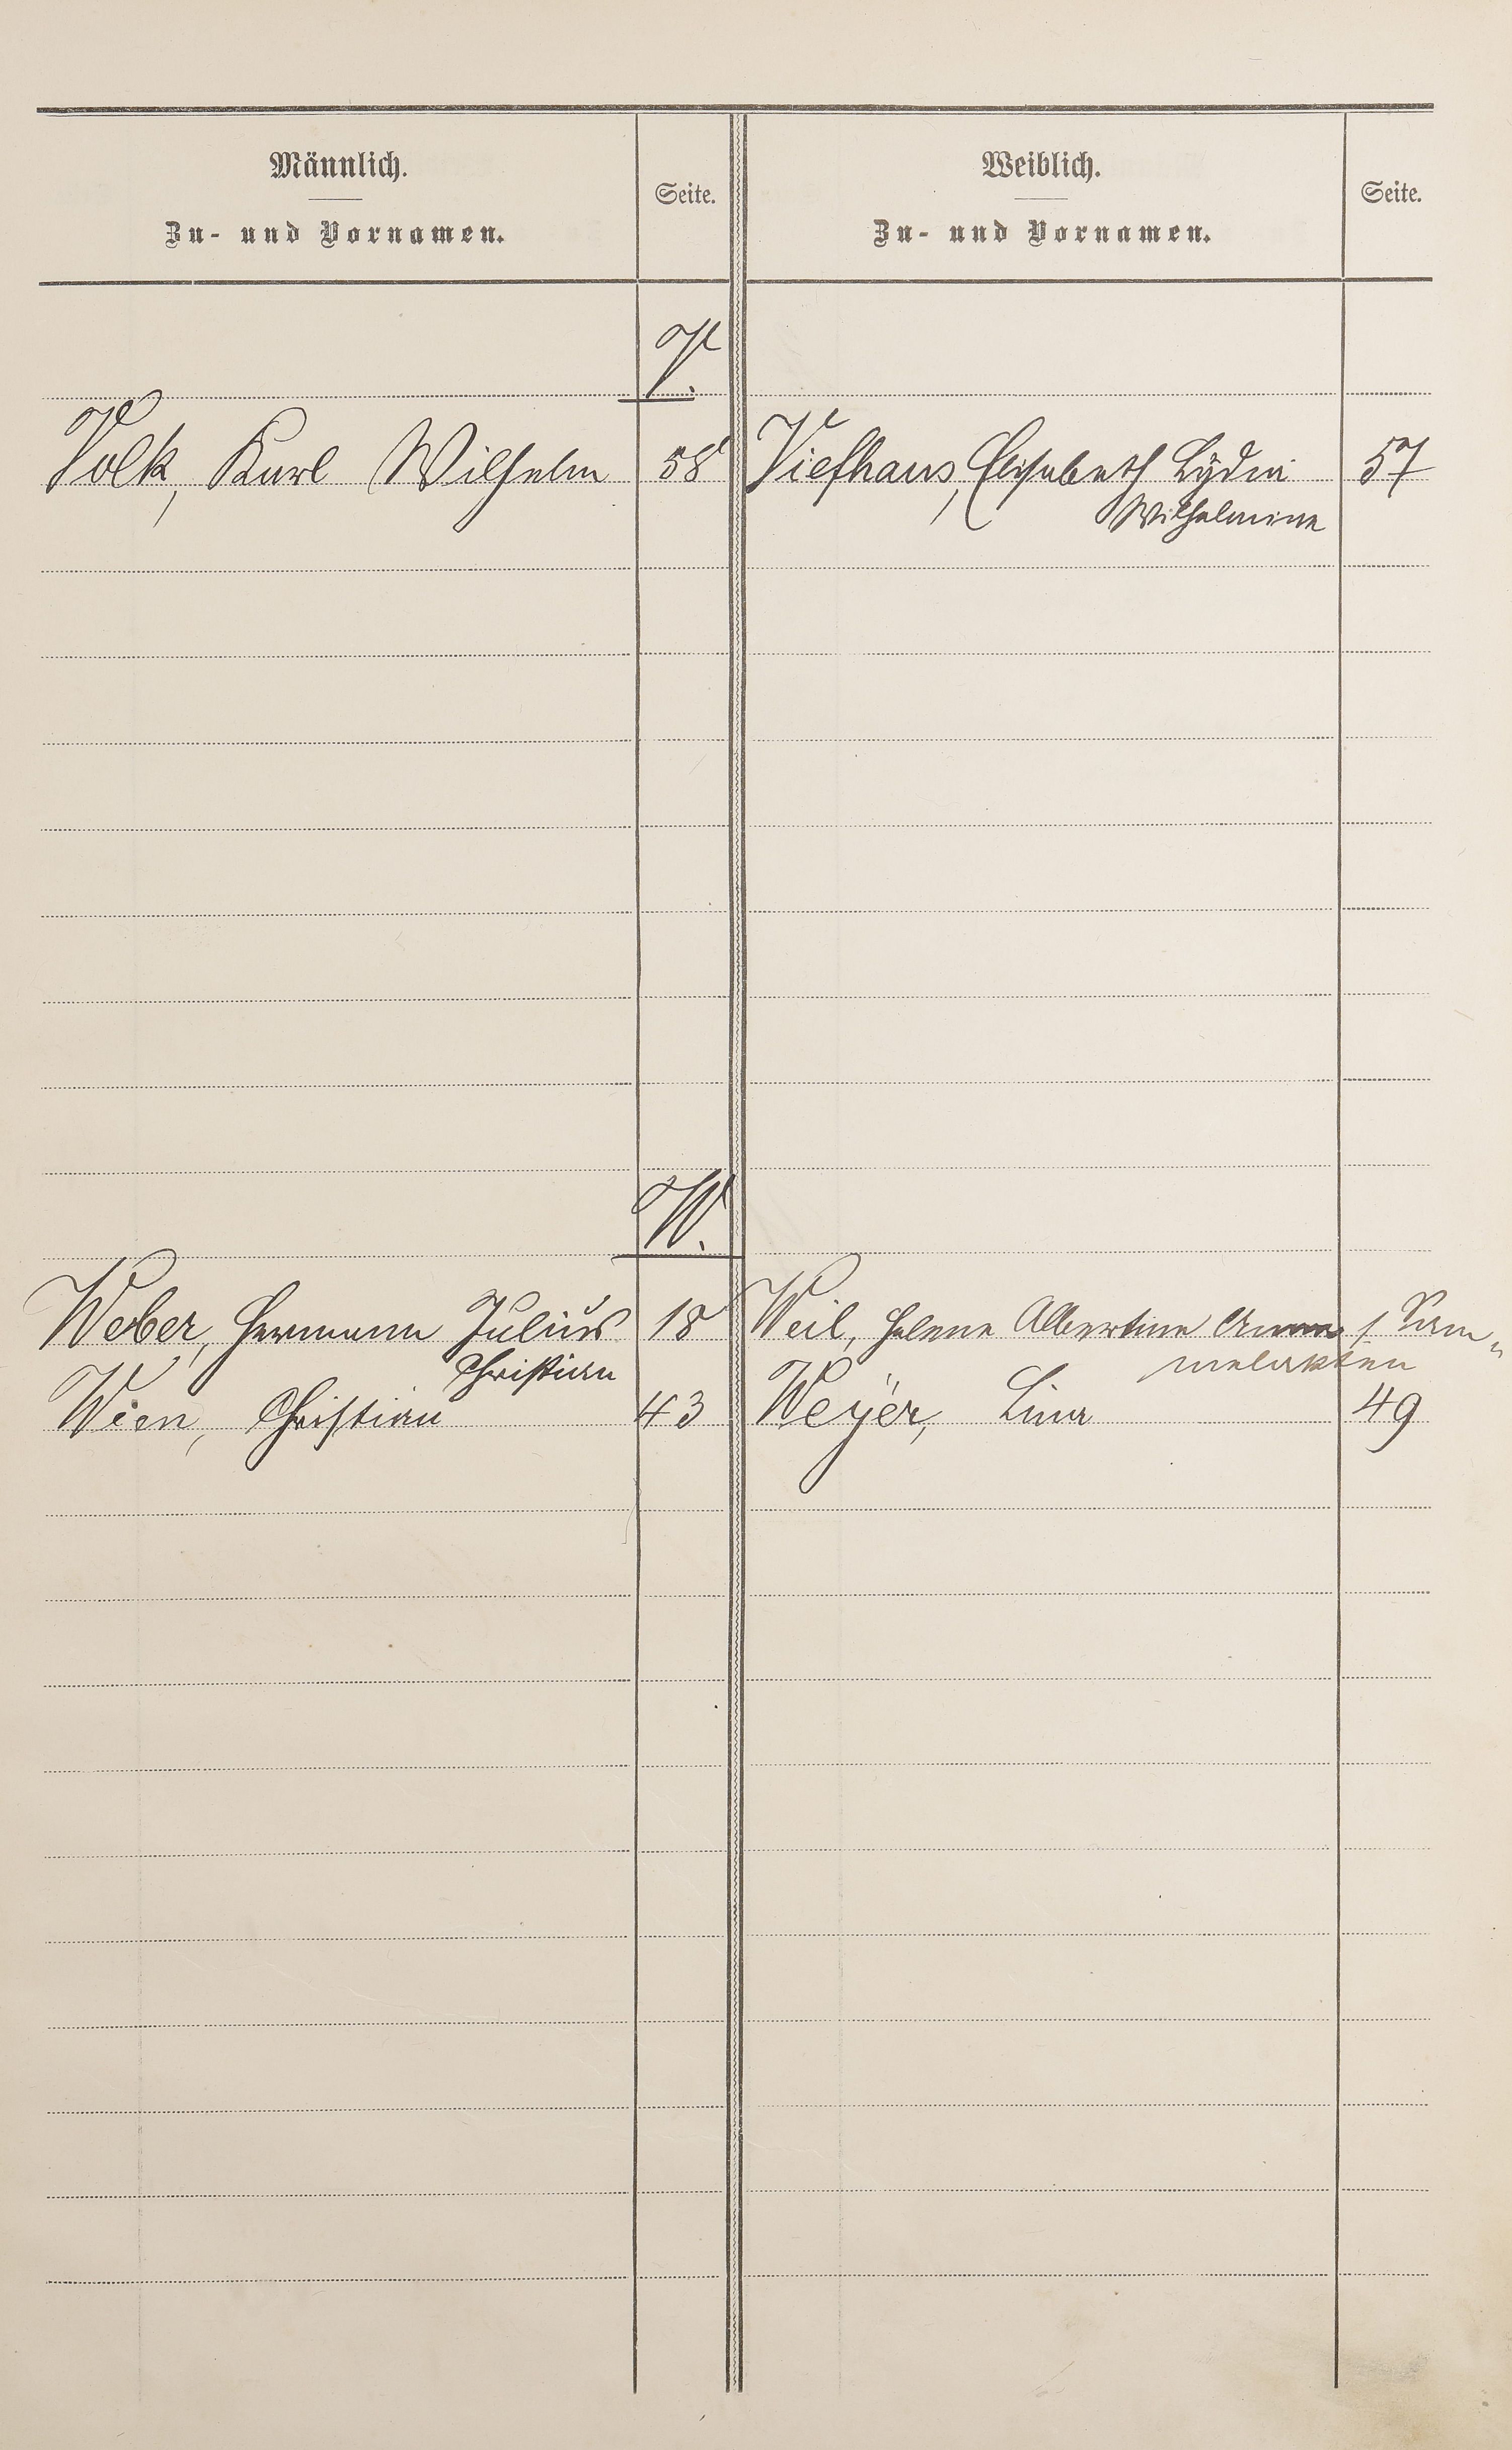 Männlich.
Zu- und Vornamen.
Seite.
Weiblich.
Zu- und Vornamen.
Seite.
V.
Volk, Karl Wilhelm 58 Viefhaus, Elisabeth Lydia 57
Wilhelmine
W.
Weber, Hermann Julius 18 Weil, Helene Albertine Anna / Sam„
Christian melakten
Wien, Christian 43 Weyer, Lina 49